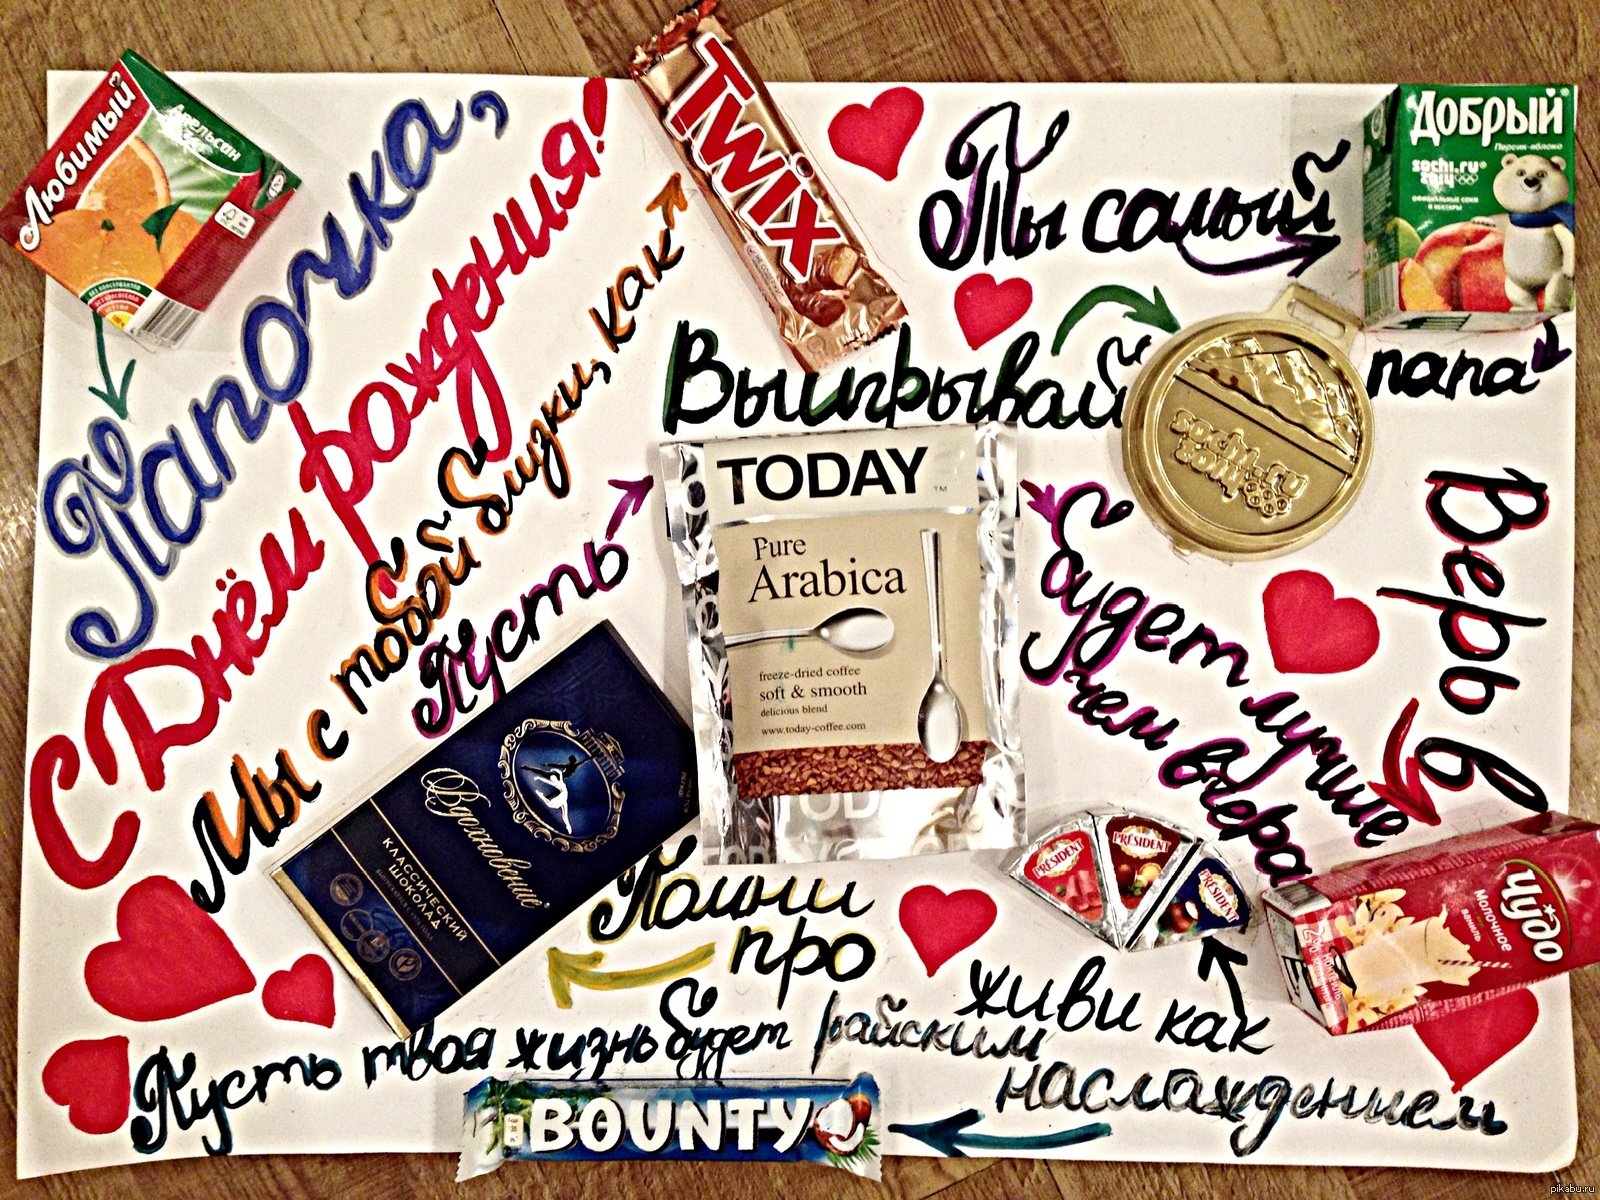 Любимый
Апельсин
Папочка,
С Днём рождения!
Мы с тобой близки, как
TWIX
Ты самый
Добрый
Персик-яблоко
sochi.ru
2014
официальные соки
и нектары
папа
Выигрывай
sochi.ru
2014
Пусть
TODAY
TM
Pure
Arabica
freeze-dried coffee
soft & smooth
delicious blend
www.today-coffee.com
будет лучше
чем вчера
Верь в
Чудо
Молочное
ваниль
Помни
про
Вдохновение
КЛАССИЧЕСКИЙ
ШОКОЛАД
живи как
PRÉSIDENT
PRÉSIDENT
PRÉSIDENT
Пусть твоя жизнь будет райским
наслаждением
BOUNTY
pikabu.ru